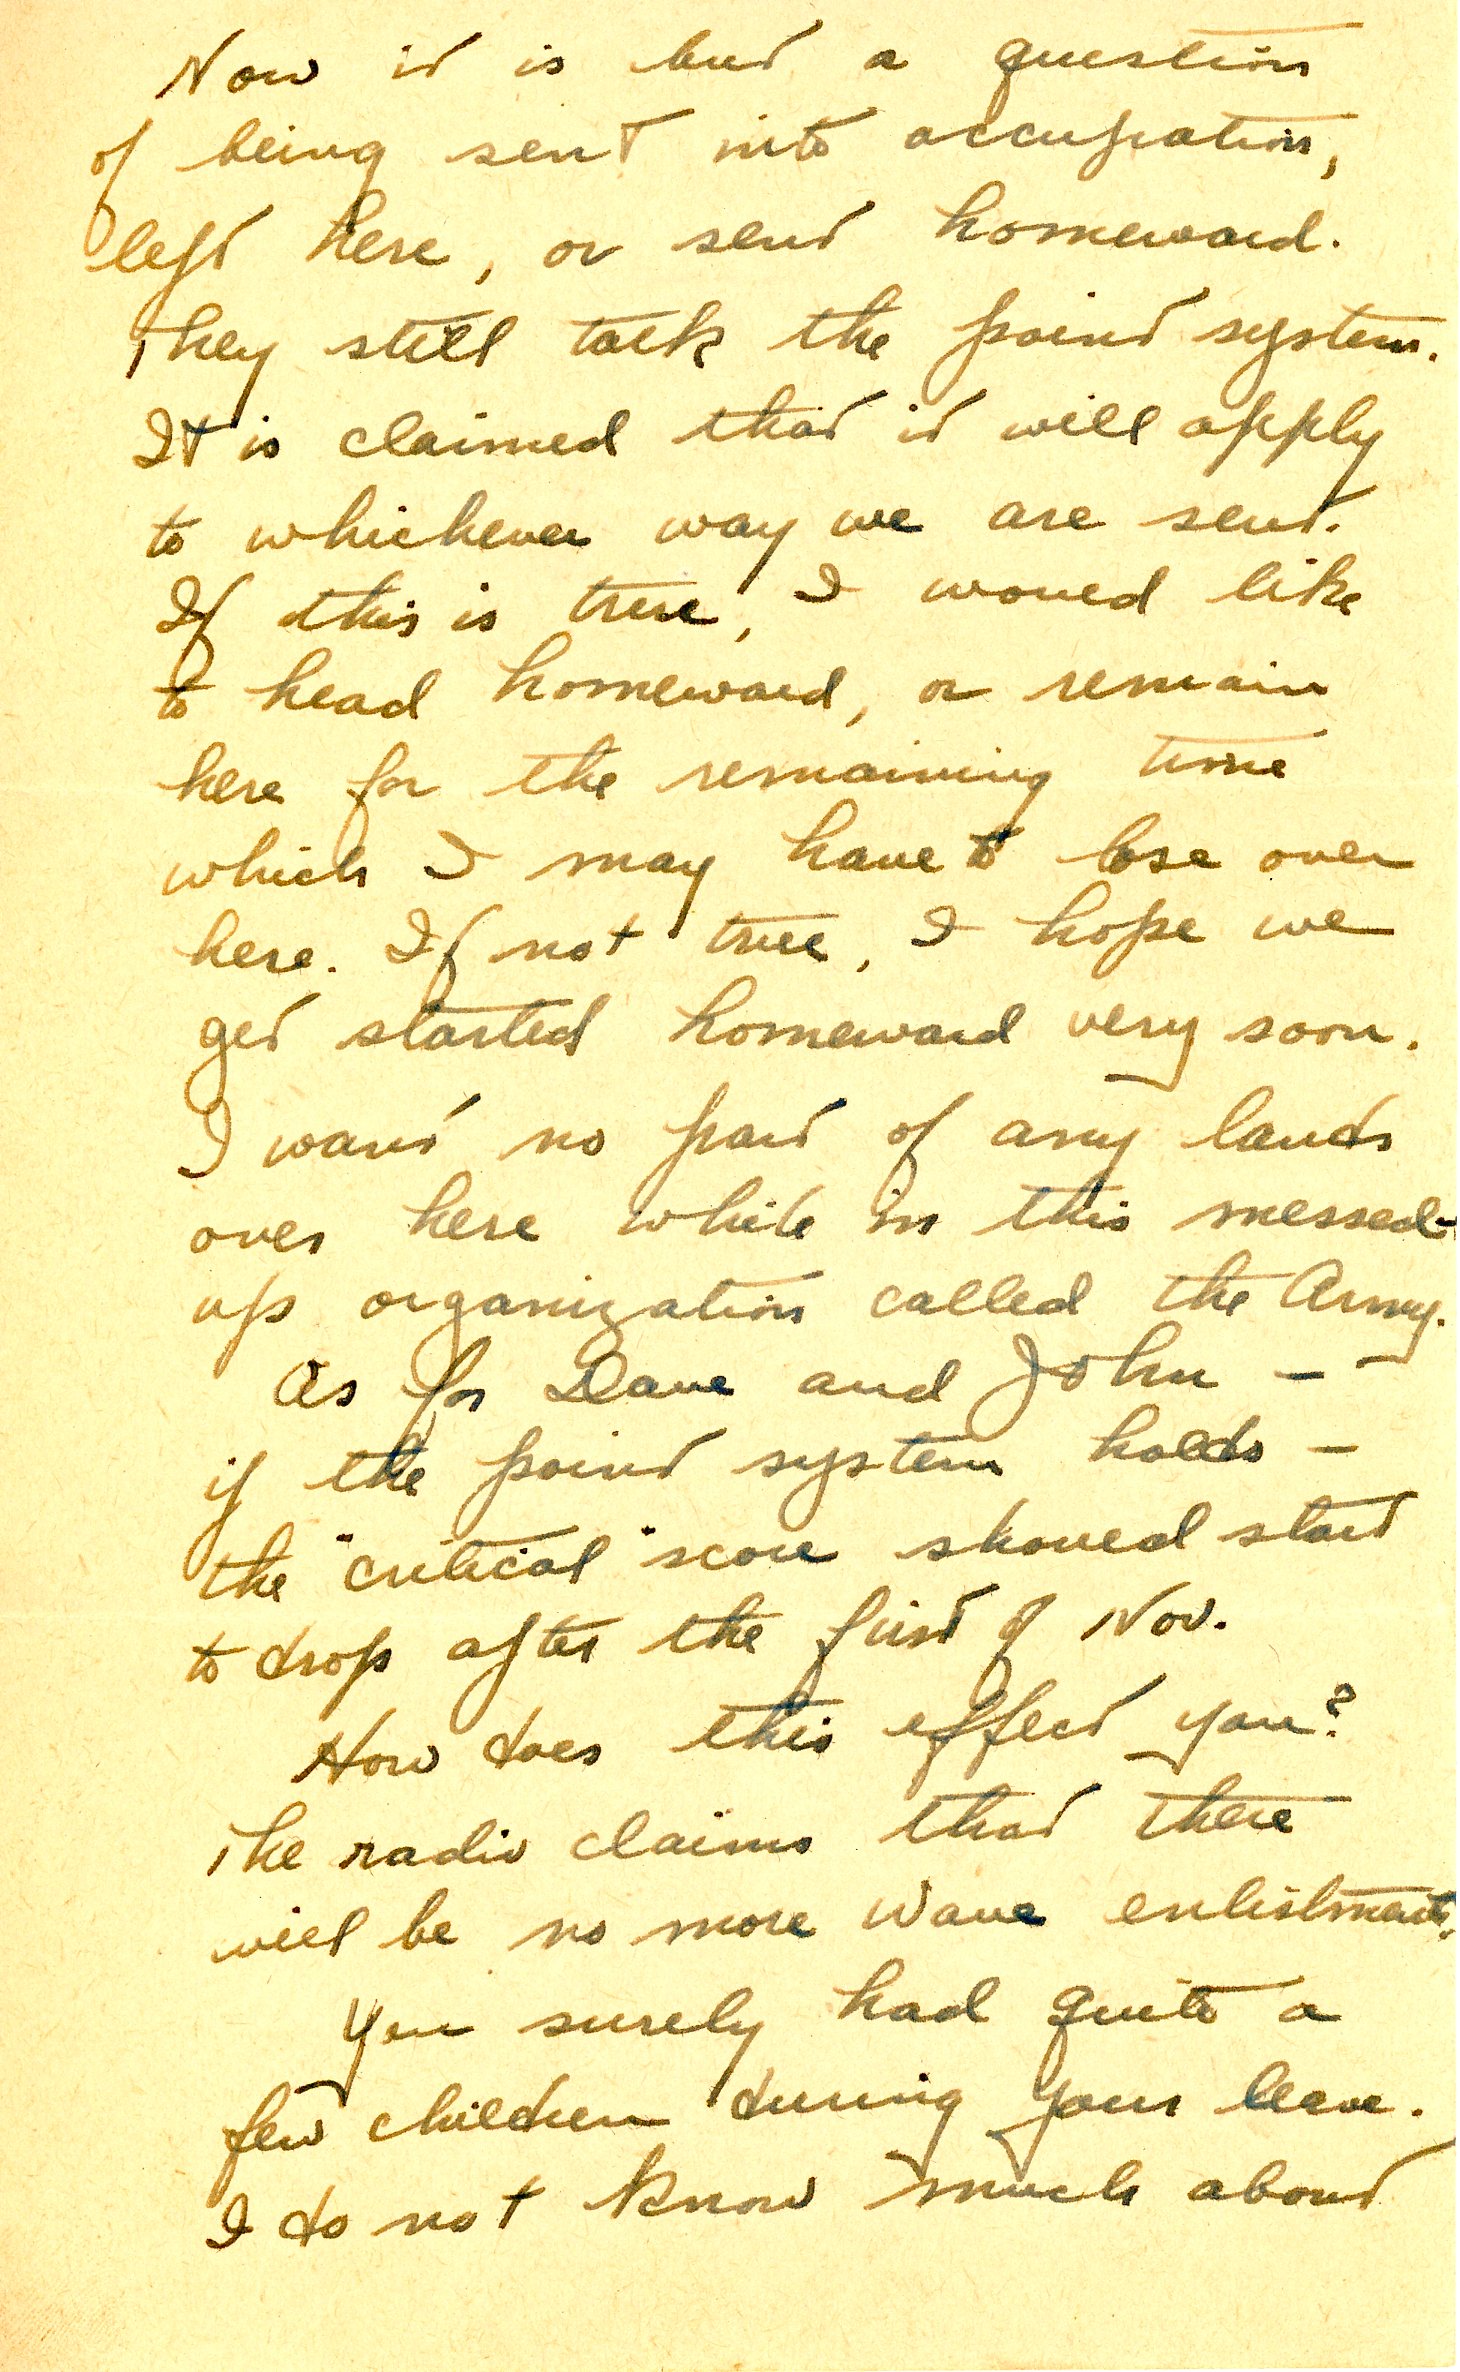 Now it is but a question
of being sent into occupation,
left here, or sent homeward.
They still talk the point system.
It is claimed that it will apply
to whichever way we are sent.
If this is true, I would like
to head homeward, or remain
here for the remaining time
which I may have to lose over
here. If not true, I hope we
get started homeward very soon.
I want no part of any lands
over here while in this messed-
up organization called the Army.
As for Dave and John —
if the point system holds —
the "critical" score should start
to drop after the first of Nov.
How does this effect you?
The radio claims that there
will be no more Wave enlistments.
You surely had quite a
few children during your leave.
I do not know much about